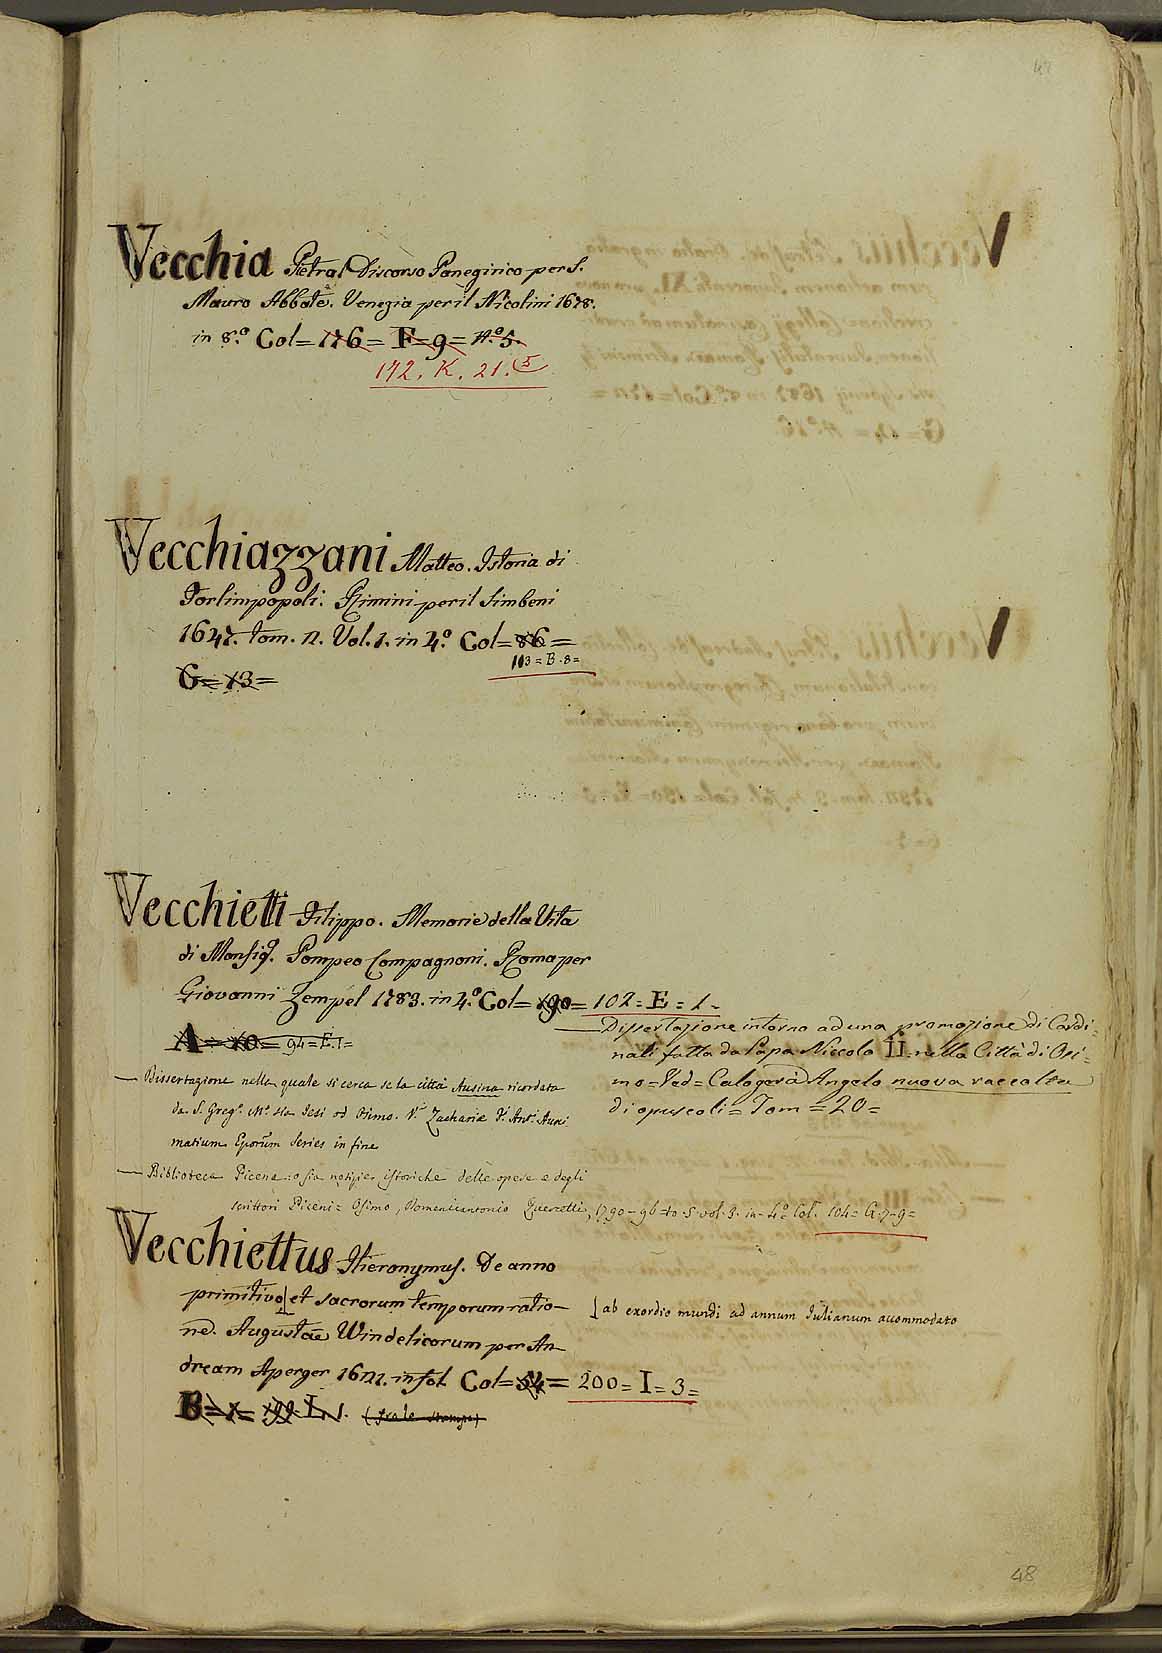 47
Vecchia Pietra Discorso Panegirico per S.
Mauro Abbate. Venezia per il Nicolini 1678.
in 8.º Col= 176= F=9= N.º 5.
172. K. 21. (5
Vecchiazzani Matteo. Istoria di
Forlimpopoli. Rimini per il Simbeni
1647. Tom. II. Vol. 1. in 4.º Col= 86=
113=B.8=
G= 13=
Vecchietti Filippo. Memorie della Vita
di Monsig.r Pompeo Compagnoni. Roma per
Giovanni Zempel 1783. in 4.º Col= 190= 102=E=1-
A= 10= 94=E.1=
— Dissertazione intorno ad una promozione di Cardi=
nali fatta da Papa Niccolo II. nella Città di Osi=
mo=Ved=Calogerà Angelo nuova raccolta
di opuscoli= Tom=20=
— Dissertazione nella quale si cerca se la città Ausina ricordata
da S. Greg.º M.º sia Iesi od Osimo. V. Zachariæ F. Ant. Auxi
matium Eporũm Series in fine
— Biblioteca Picena o sia notizie istoriche delle opere e degli
scrittori Piceni= Osimo, Domenicantonio Quercetti, 1790-96=to.5 vol.3. in-4.º Col. 104=G.7-9=
Vecchiettus Hieronymus. De anno
primitivo| et sacrorum temporum ratio-
ne. Augustae Windelicorum per An
dream Aperger 1621. in fol. Col=54= 200=I=3=
| ab exordio mundi ad annum Iulianum accommodato
B=1= 199. I. 1. (fra le stampe)
48